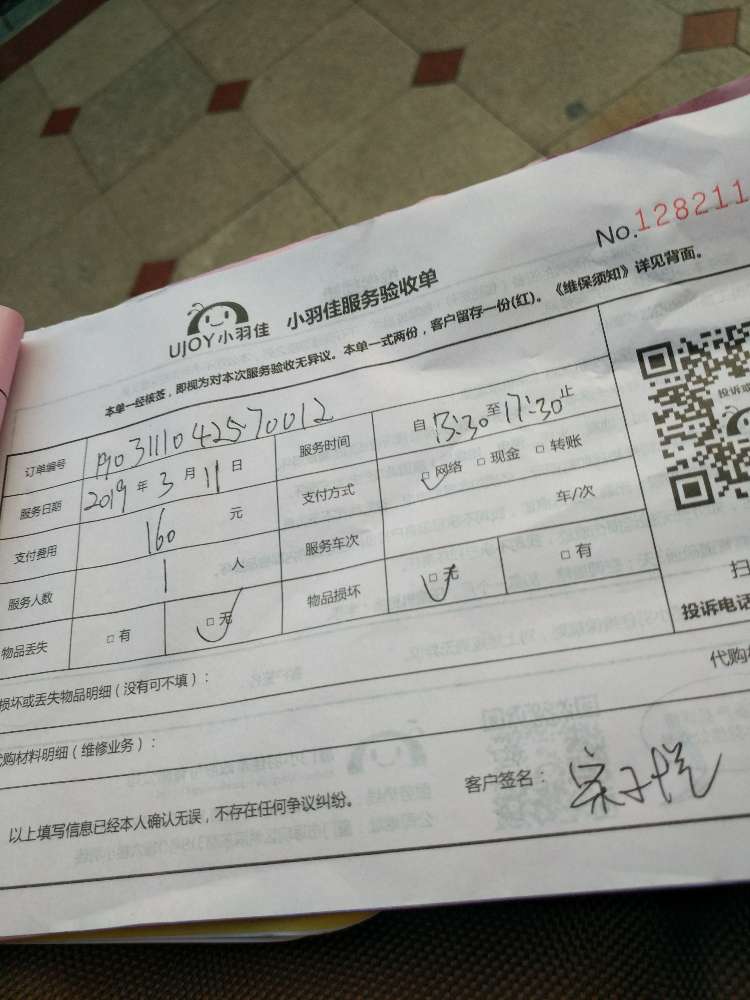 No.128211
UJOY小羽佳 小羽佳服务验收单
本单一经核签，即视为对本次服务验收无异议。本单一式两份，客户留存一份(红)。《维保须知》详见背面。
订单编号 1903111042570012 服务时间 自 13:30 至 17:30 止
服务日期 2019 年 3 月 11 日 支付方式 □ 网络 □ 现金 □ 转账
支付费用 160 元 服务车次 车/次
服务人数 1 人 物品损坏 □ 无 □ 有
物品丢失 □ 有 □ 无
投诉电话
损坏或丢失物品明细（没有可不填）：
代购
代购材料明细（维修业务）：
以上填写信息已经本人确认无误，不存在任何争议纠纷。 客户签名：